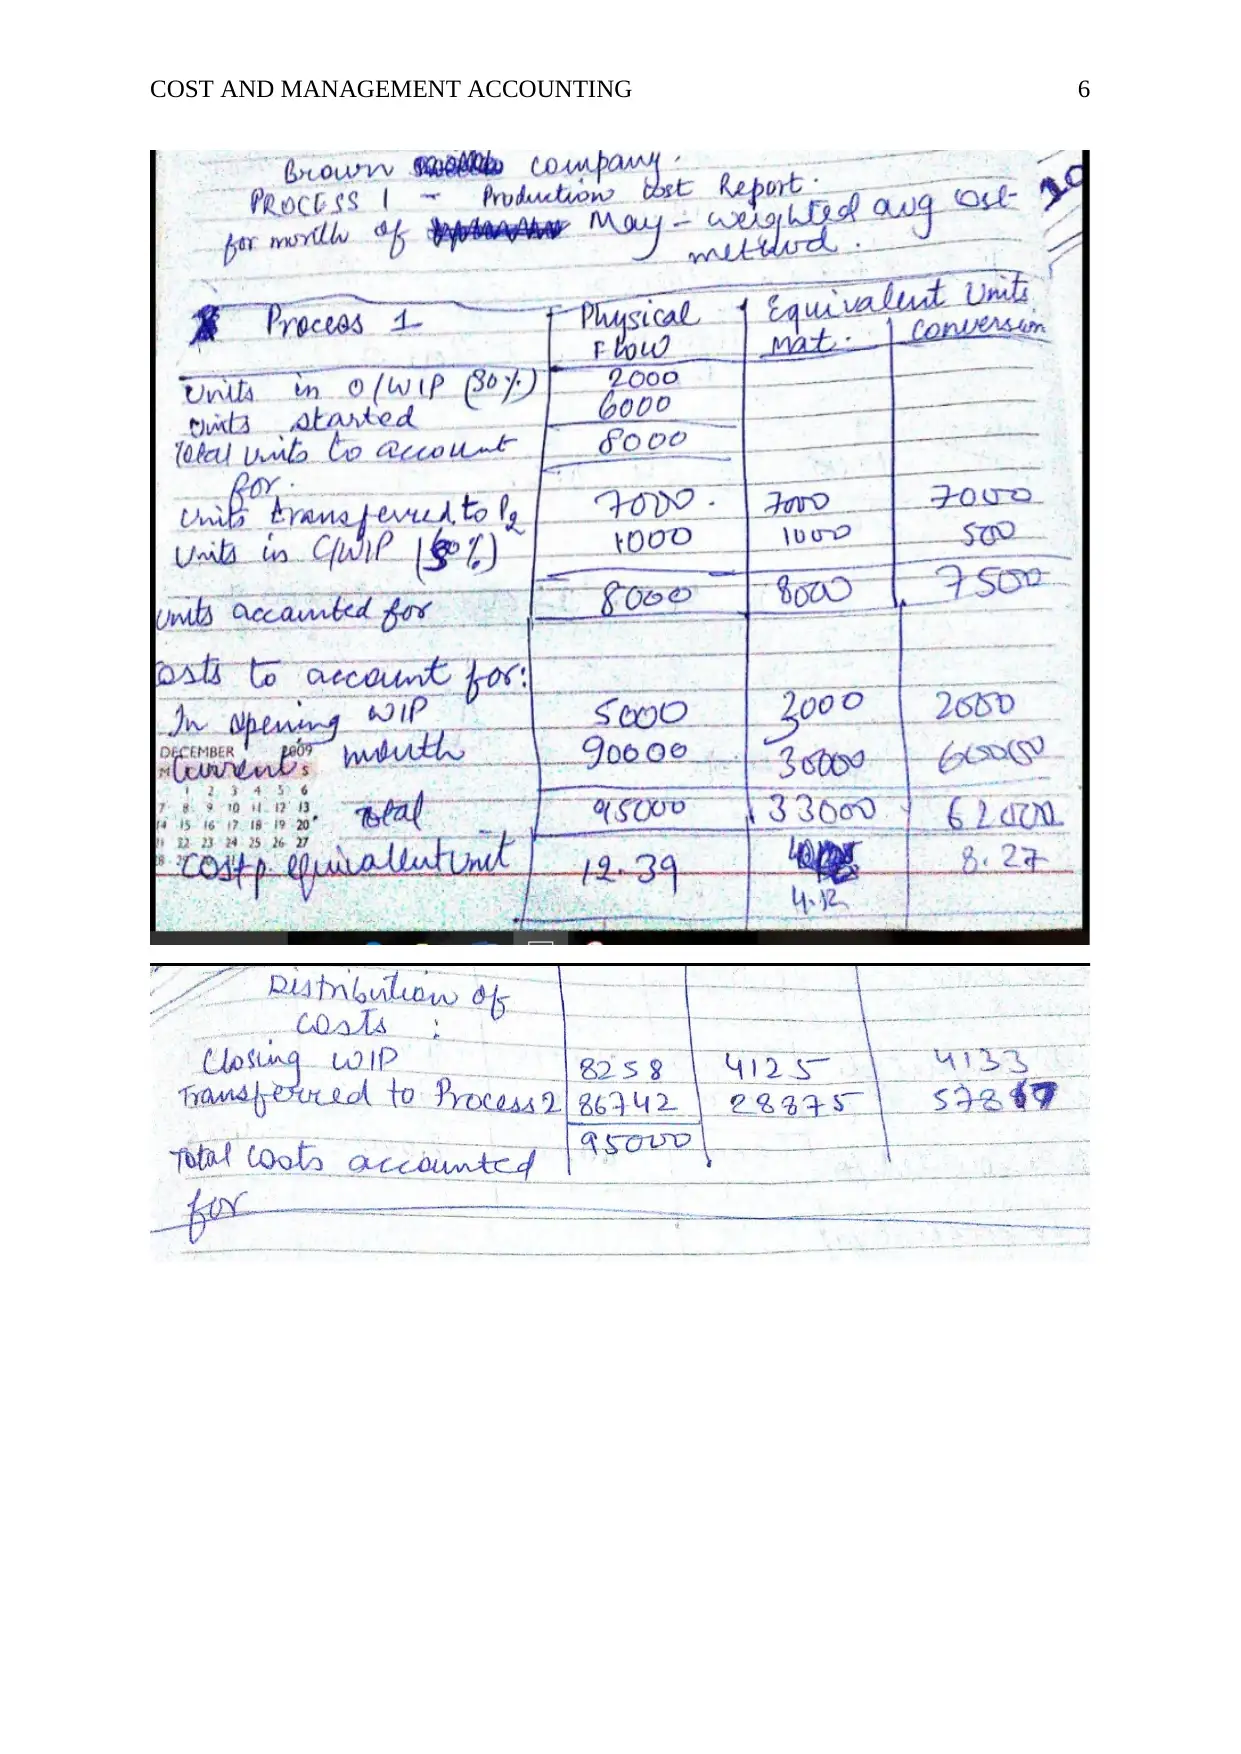 COST AND MANAGEMENT ACCOUNTING 6
Brown company.
PROCESS 1 - Production Cost Report.
for month of May - weighted avg cost
method.
Process 1 Physical Flow Equivalent Units
Mat. Conversion
Units in O/WIP (30%) 2000
Units started 6000
Total units to account 8000
for.
Units transferred to P2 7000. 7000 7000
Units in C/WIP 1000 1000 500
Units accounted for 8000 8000 7500
osts to account for:
In opening WIP 5000 3000 2000
DECEMBER 2009
Current month 90000 30000 60000
S
1 2 3 4 5 6
7 8 9 10 11 12 13
14 15 16 17 18 19 20
Total 95000 33000 62000
22 23 24 25 26 27
Cost p. equivalent unit 12.39 8.27
4.12
Distribution of
costs :
Closing WIP 8258 4125 4133
Transferred to Process 2 86742 28875
Total costs accounted 95000
for